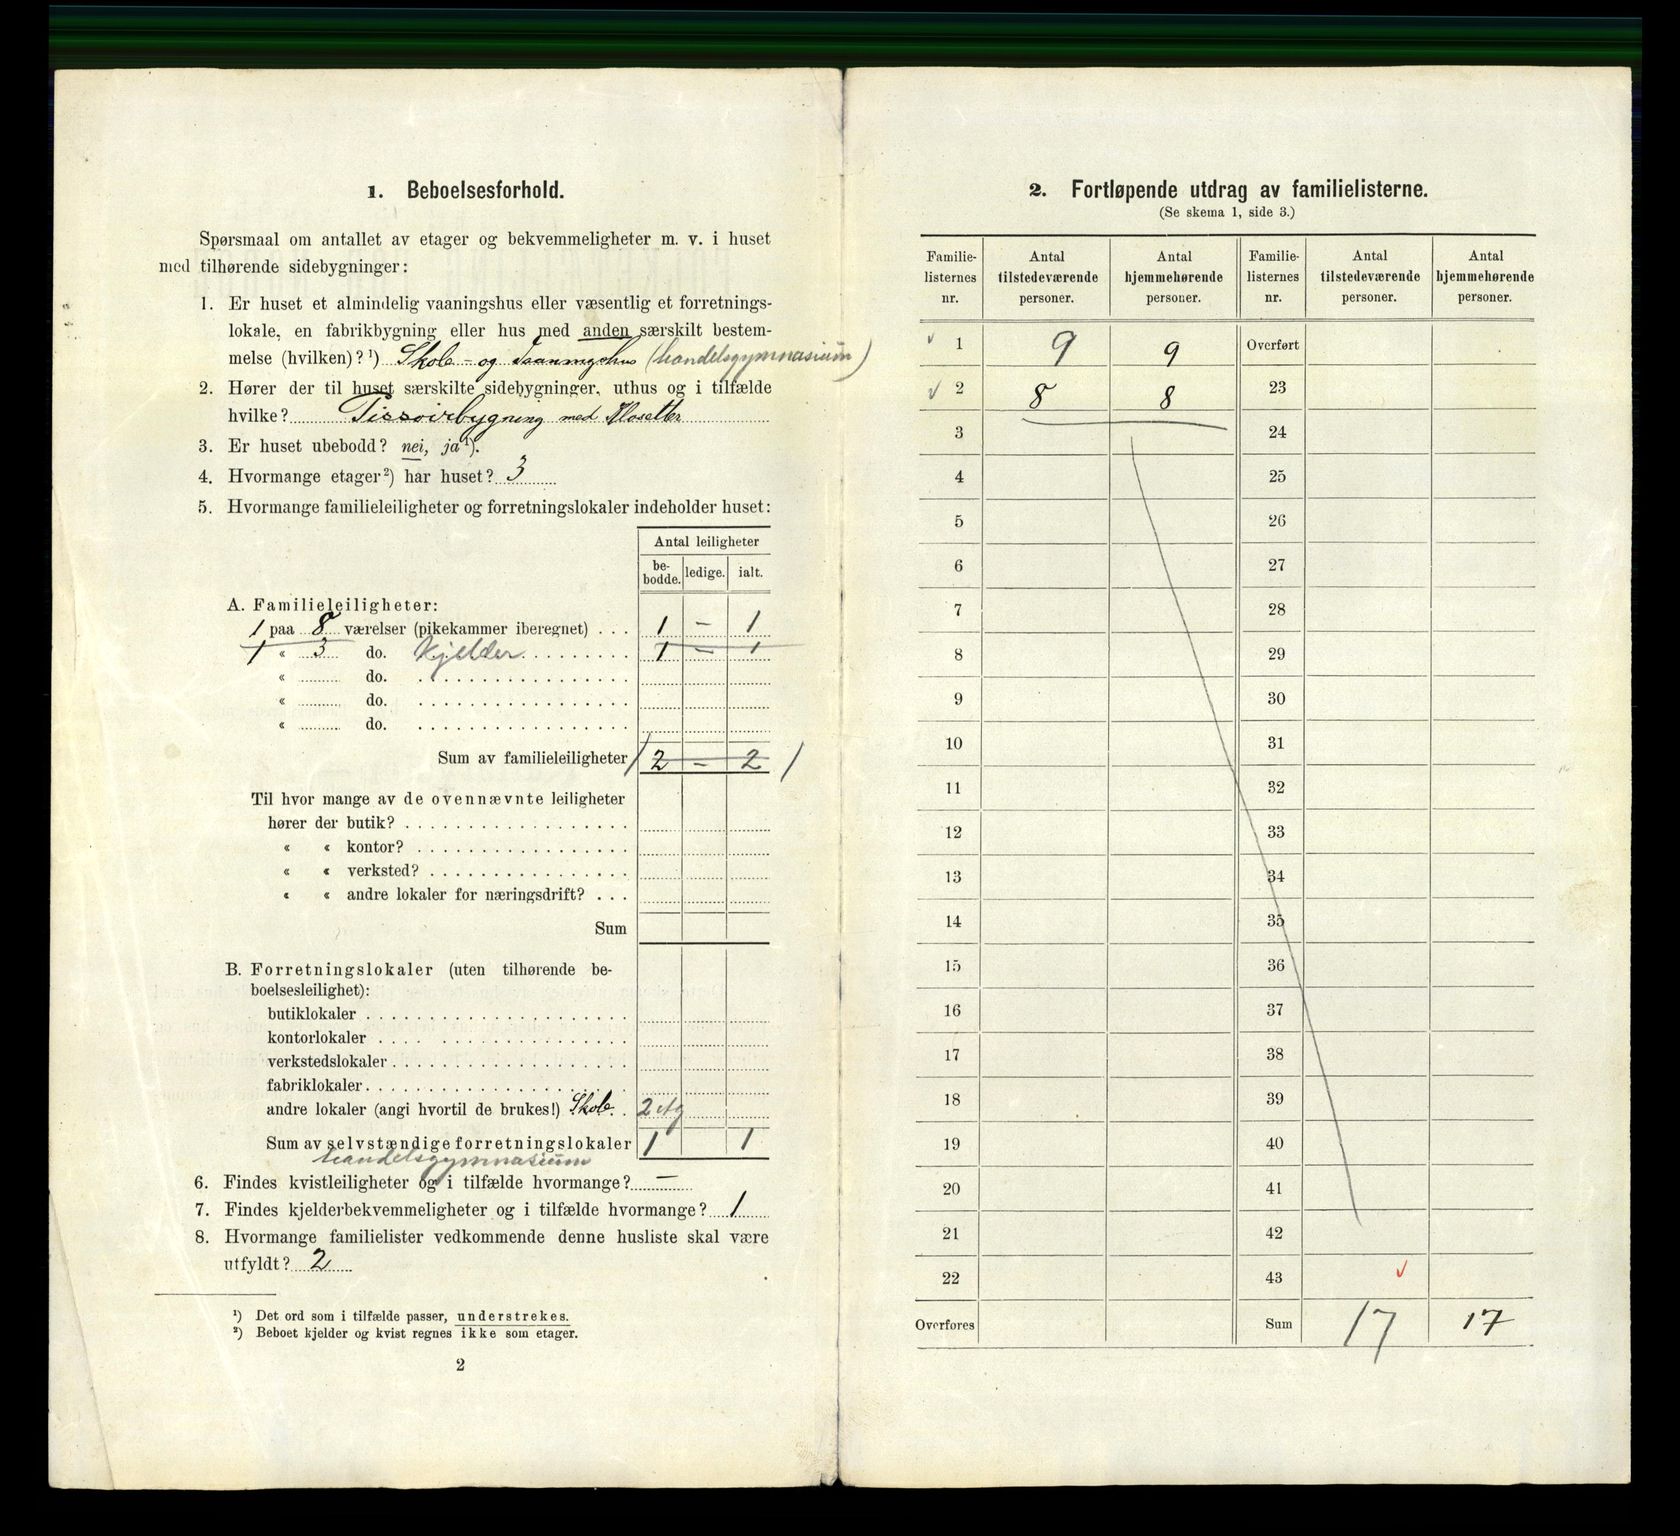 1. Beboelsesforhold.
Spørsmaal om antallet av etager og bekvemmeligheter m. v. i huset
med tilhørende sidebygninger:
1. Er huset et almindelig vaaningshus eller væsentlig et forretnings-
lokale, en fabrikbygning eller hus med anden særskilt bestem-
melse (hvilken)? ¹) Skole- og (handelsgymnasium)
2. Hører der til huset særskilte sidebygninger, uthus og i tilfælde
hvilke? Pissoirbygning med Klosetter
3. Er huset ubebodd? nei, ja ¹).
4. Hvormange etager ²) har huset? 3
5. Hvormange familieleiligheter og forretningslokaler indeholder huset:
Antal leiligheter
be-bodde. ledige. ialt.
A. Familieleiligheter:
1 paa 8 værelser (pikekammer iberegnet) . . . 1 – 1
1 « 3 do. Kjelder 1 – 1
« do.
« do.
« do.
Sum av familieleiligheter 1 2 – 2 1
Til hvor mange av de ovennævnte leiligheter
hører der butik?
« « kontor?
« « verksted?
« « andre lokaler for næringsdrift? . . .
Sum
B. Forretningslokaler (uten tilhørende be-
boelsesleilighet):
butiklokaler
kontorlokaler
verkstedslokaler
fabriklokaler
andre lokaler (angi hvortil de brukes!) Skole. 2 etg
Sum av selvstændige forretningslokaler 1 1
handelsgymnasium
6. Findes kvistleiligheter og i tilfælde hvormange? –
7. Findes kjelderbekvemmeligheter og i tilfælde hvormange? 1
8. Hvormange familielister vedkommende denne husliste skal være
utfyldt? 2
¹) Det ord som i tilfælde passer, understrekes.
²) Beboet kjelder og kvist regnes ikke som etager.
2
2. Fortløpende utdrag av familielisterne.
(Se skema 1, side 3.)
Familie-listernes nr. Antal tilstedeværende personer. Antal hjemmehørende personer. Familie-listernes nr. Antal tilstedeværende personer. Antal hjemmehørende personer.
✓ 1 9 9 Overført
✓ 2 8 8 23
3 24
4 25
5 26
6 27
7 28
8 29
9 30
10 31
11 32
12 33
13 34
14 35
15 36
16 37
17 38
18 39
19 40
20 41
21 42
22 43 ✓
Overføres Sum 17 17